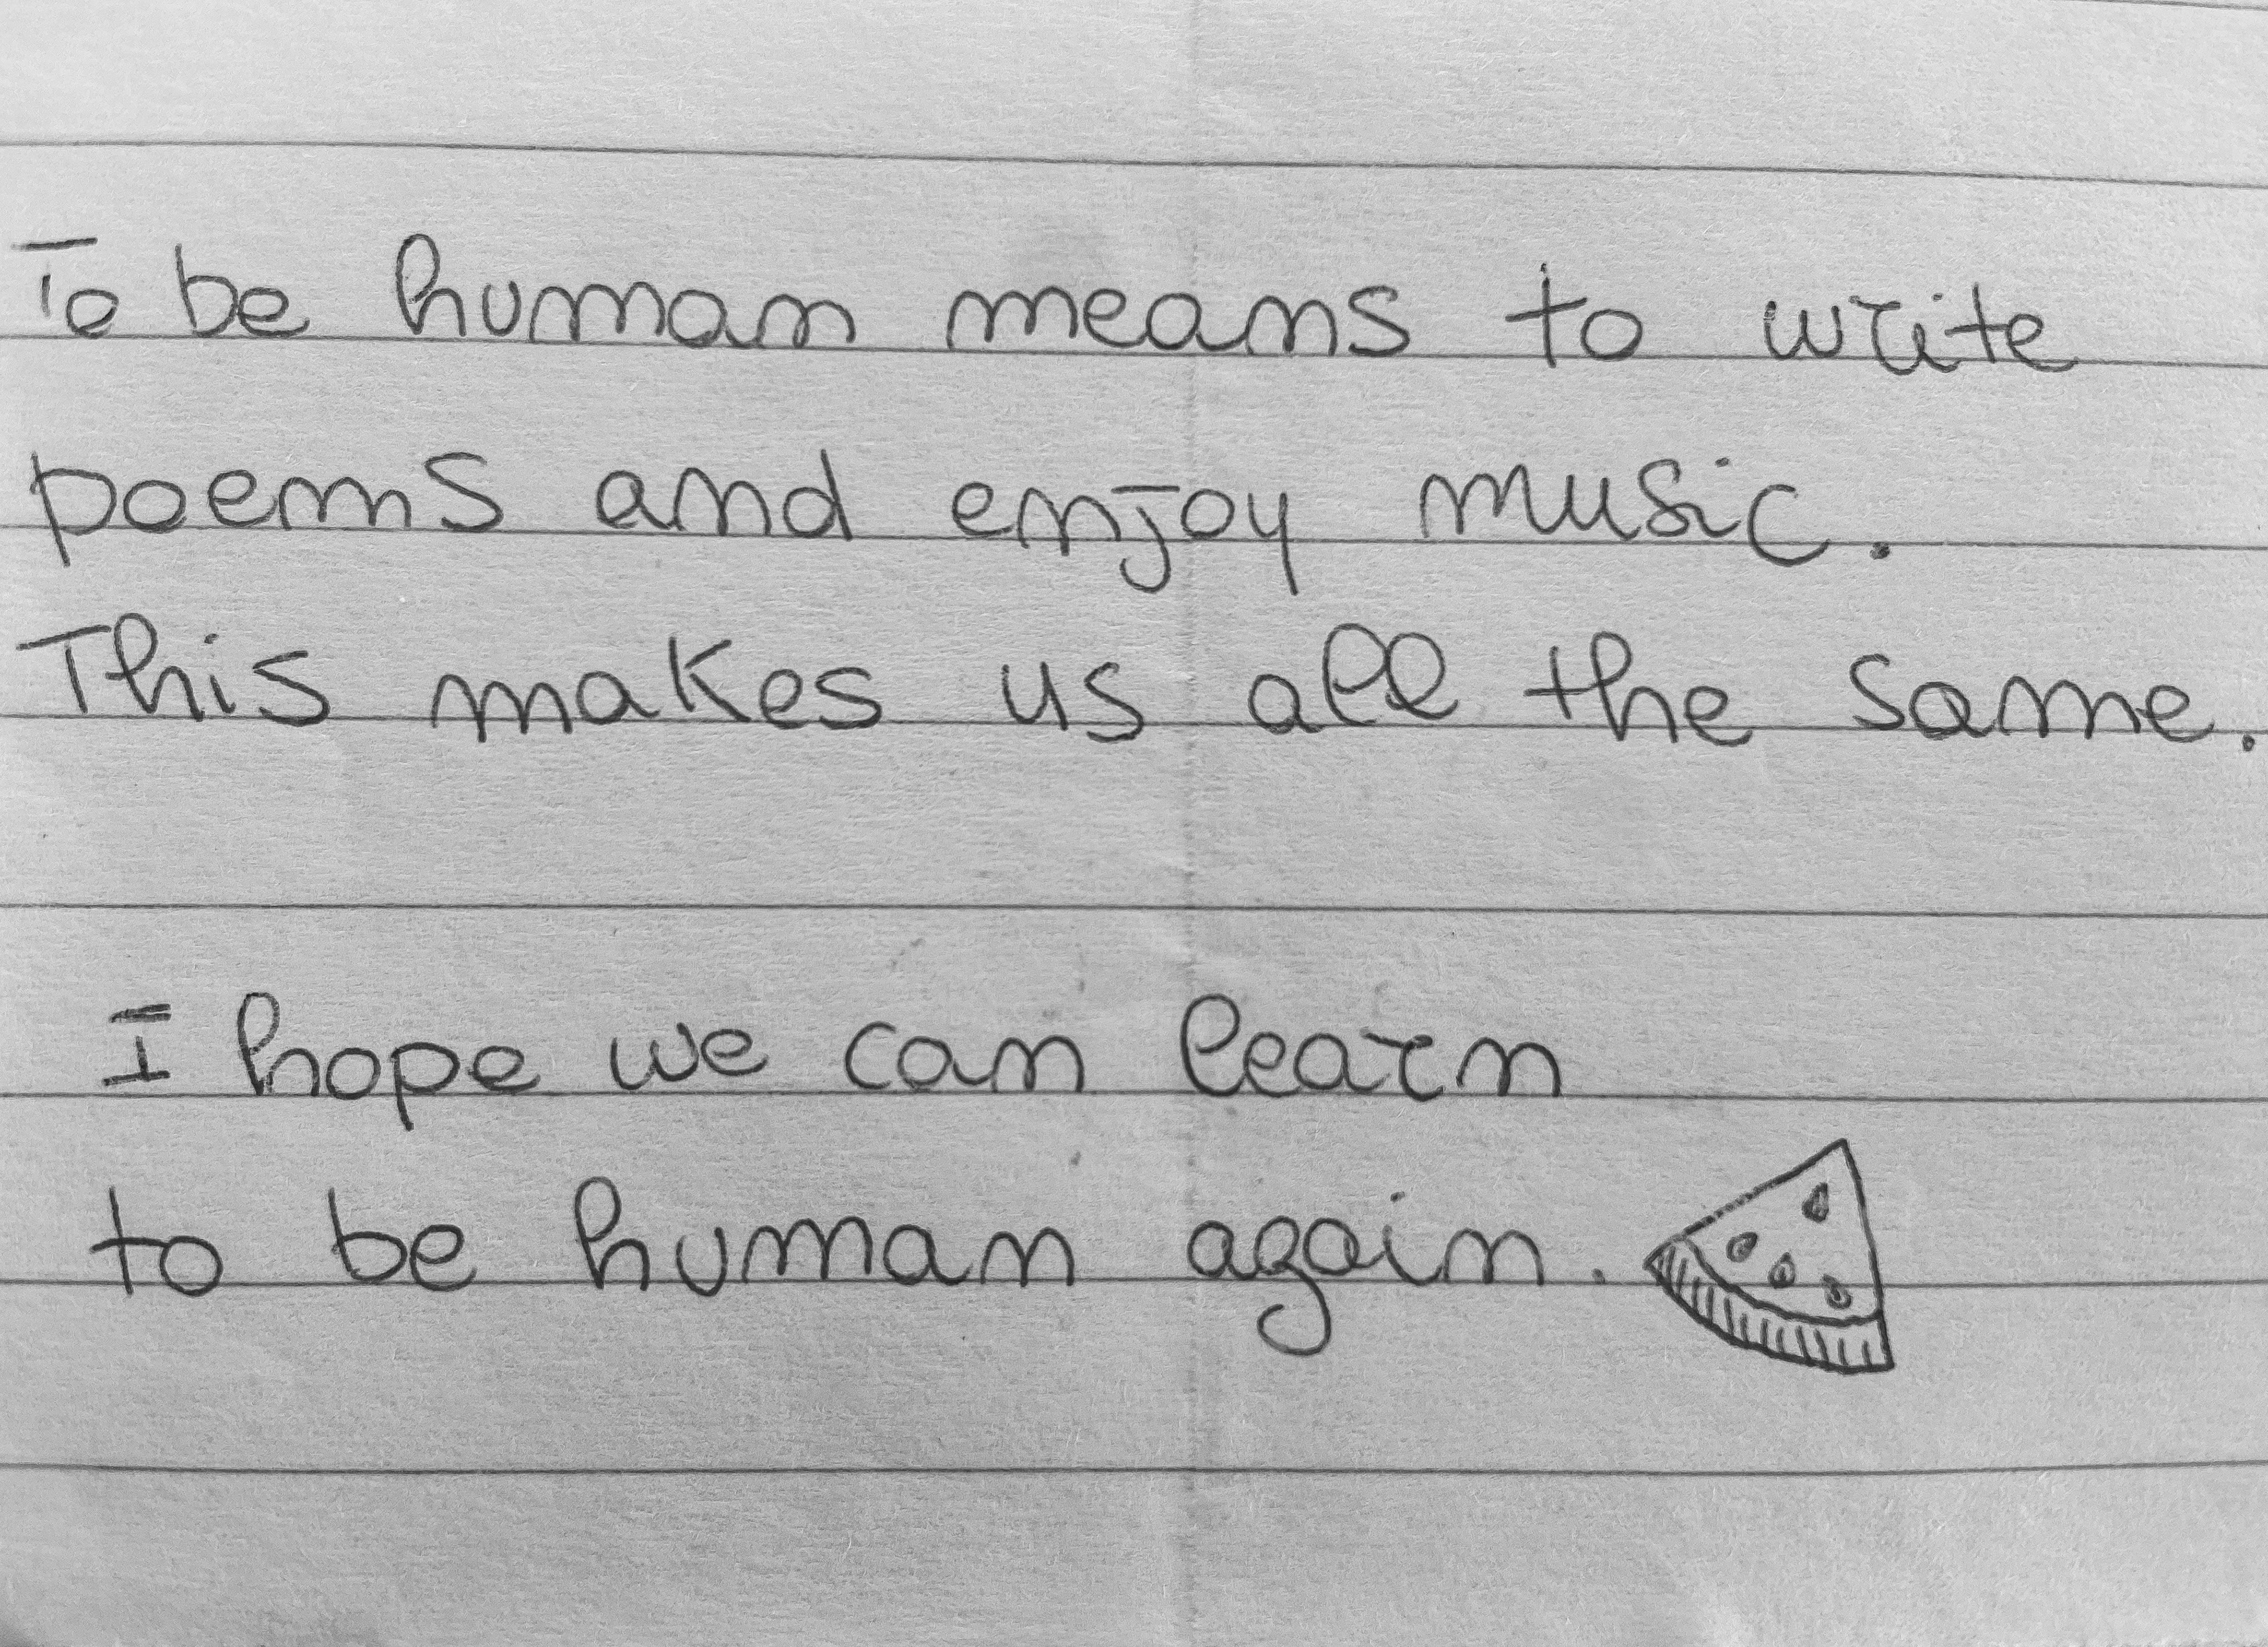 To be human means to write
poems and enjoy music.
This makes us all the same.
I hope we can learn
to be human again.